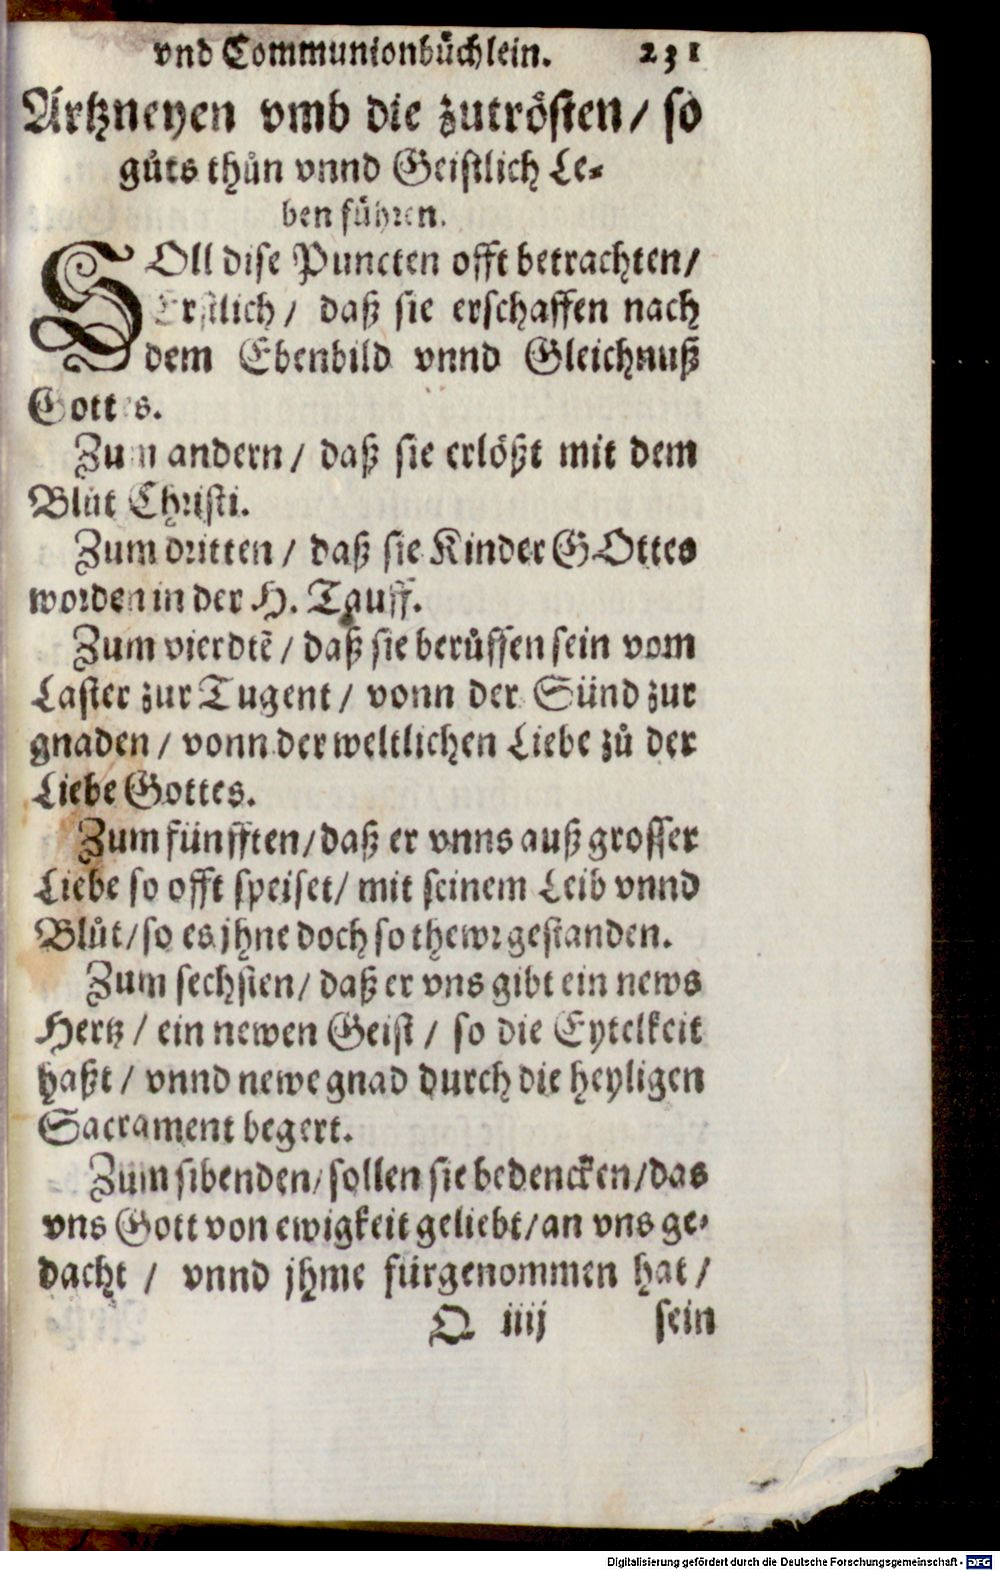 vnd Communionbüchlein. 231
Artzneyen vmb die zutrösten / so
gůts thůn vnnd Geistlich Le-
ben führen.
SOll dise Puncten offt betrachten /
Erstlich / daß sie erschaffen nach
dem Ebenbild vnnd Gleichnuß
Gottes.
Zum andern / daß sie erlößt mit dem
Blůt Christi.
Zum dritten / daß sie Kinder GOttes
worden in der H. Tauff.
Zum vierdtẽ / daß sie berůffen sein vom
Laster zur Tugent / vonn der Sünd zur
gnaden / vonn der weltlichen Liebe zů der
Liebe Gottes.
Zum fünfften / daß er vnns auß grosser
Liebe so offt speiset / mit seinem Leib vnnd
Blůt / so es jhne doch so thewr gestanden.
Zum sechsten / daß er vns gibt ein news
Hertz / ein newen Geist / so die Eytelkeit
haßt / vnnd newe gnad durch die heyligen
Sacrament begert.
Zum sibenden / sollen sie bedencken / das
vns Gott von ewigkeit geliebt / an vns ge-
dacht / vnnd jhme fürgenommen hat /
Q iiij sein
Digitalisierung gefördert durch die Deutsche Forschungsgemeinschaft - DFG